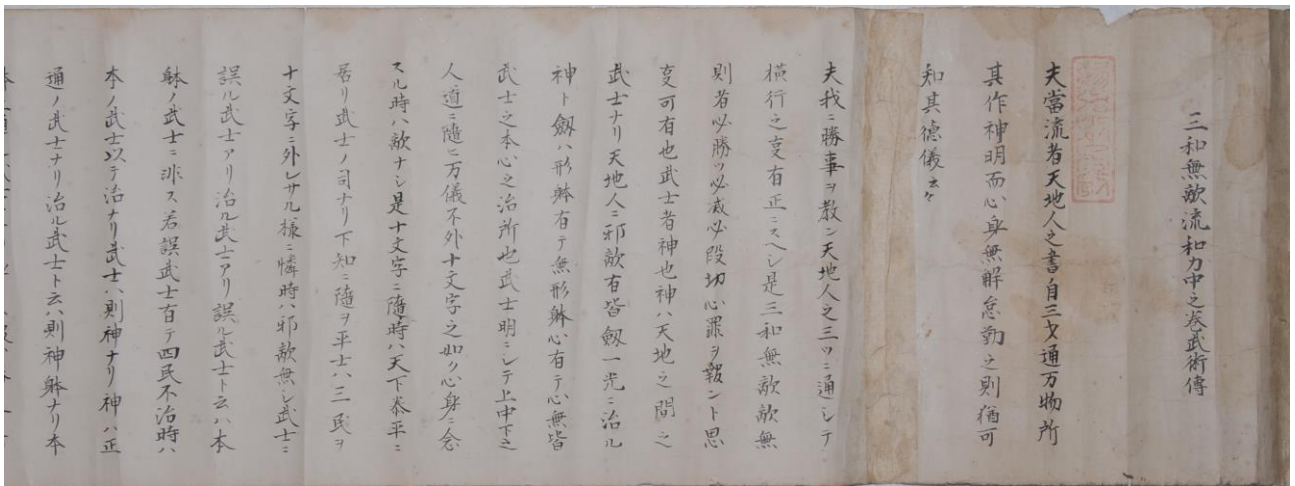 三和無敵流和力中之巻武術傳
夫當流者天地人之書ノ自三才通万物所
其作神明而心身無解怠勤之則猶可
知其德儀云々
夫我ニ勝事ヲ教ン天地人之三ツニ通シテ
横行之変有正ニスヘシ是三和無敵敵無
則者必勝ツ必滅必段切心罪ヲ報ント思
変可有也武士者神也神ハ天地之間之
武士ナリ天地人ニ邪敵有皆劔一光ニ治ル
神ト劔ハ形躰有テ無形躰心有テ心無皆
武士之本心之治所也武士明ニシテ上中下之
人道ニ隨ヒ万儀不外十文字之如ク心身ニ念
スル時ハ敵ナシ是十文字ニ隨時ハ天下泰平ニ
居リ武士ノ司ナリ下知ニ隨ヲ平士ハ三民ヲ
十文字ニ外レサル様ニ憐時ハ邪敵無シ武士ニ
誤ル武士アリ治ル武士アリ誤ル武士ト云ハ本
躰ノ武士ニ非ス若誤武士有テ四民不治時ハ
本ノ武士以テ治ナリ武士ハ則神ナリ神ハ正
通ノ武士ナリ治ル武士ト云ハ則神躰ナリ本